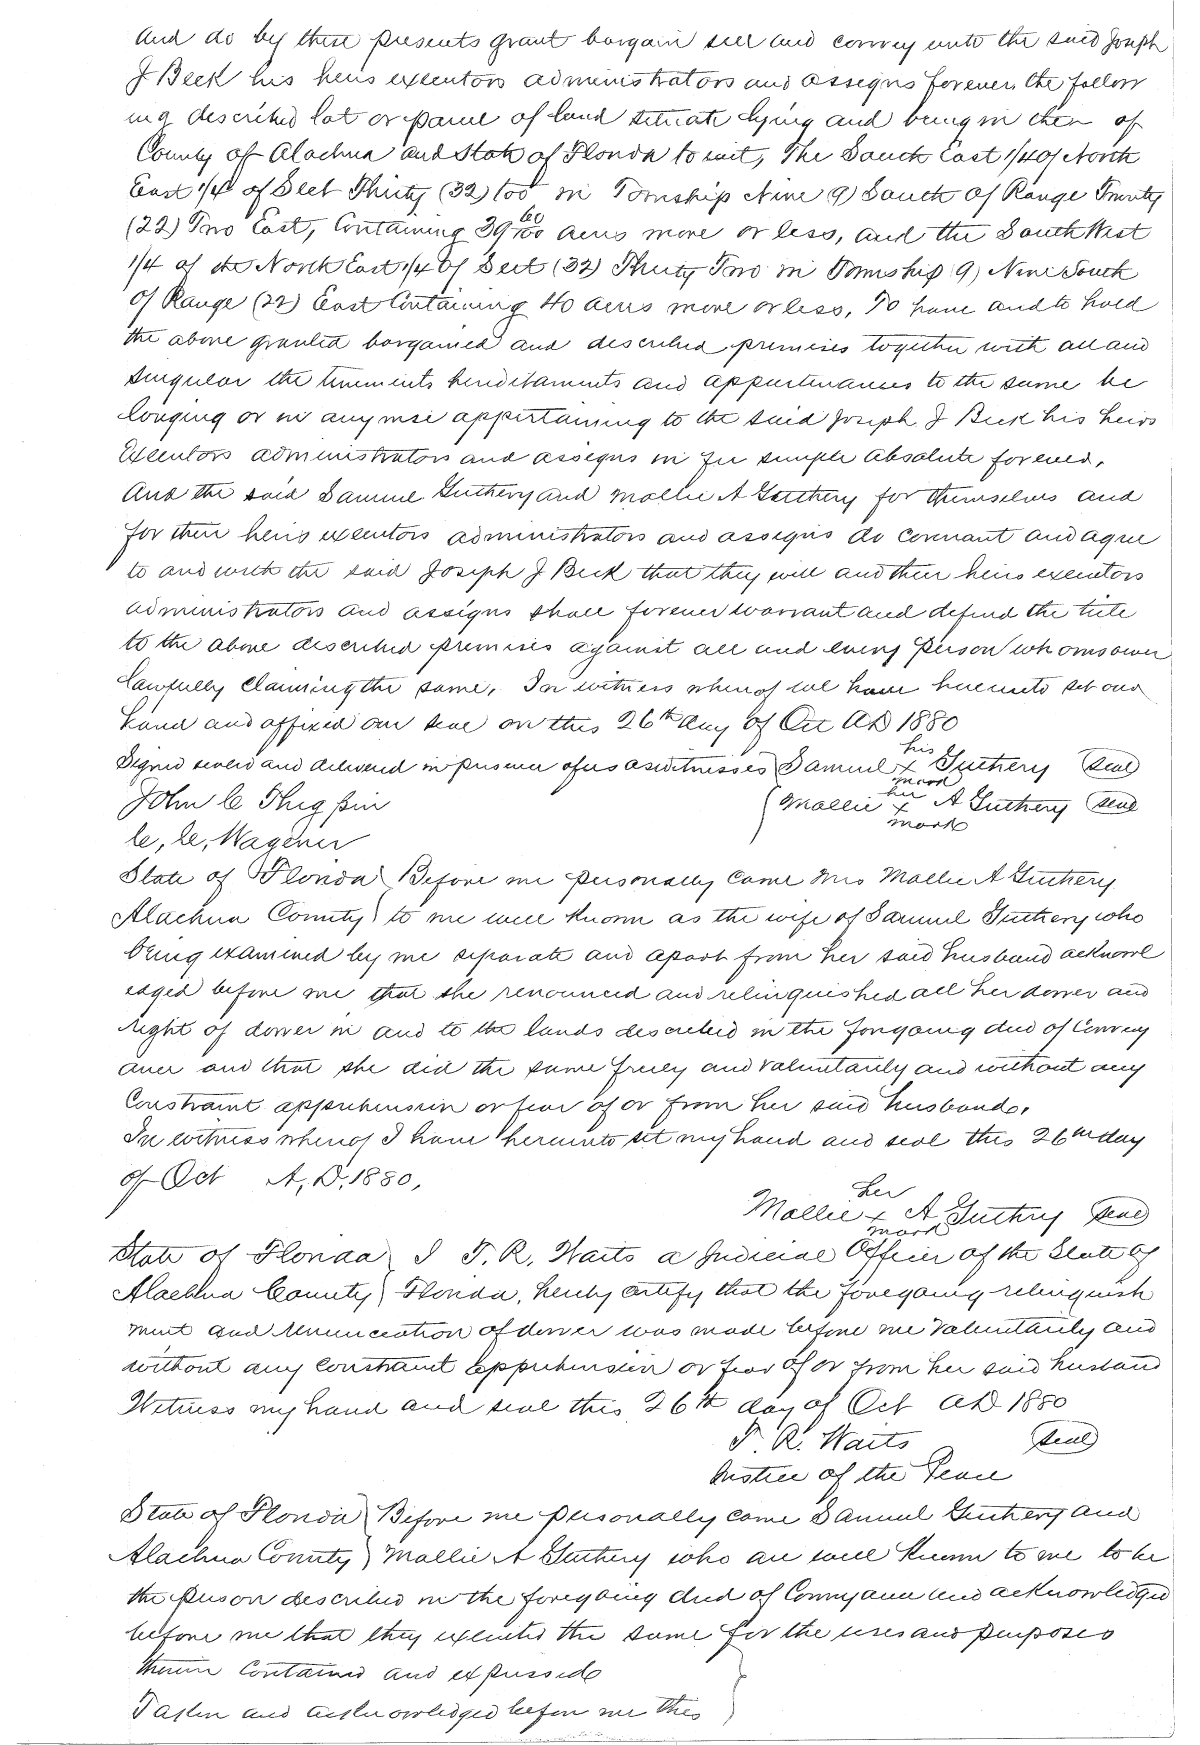 And do by these presents grant bargain sell and convey unto the said Joseph
J Beck his heirs executors administrators and assigns forever, the follow
ing described lot or parcel of land situate lying and being in the of
County of Alachua and State of Florida to wit, The South East 1/4 of North
East 1/4 of Sect Thirty (32) too in Township Nine (9) South of Range Twenty
(22) Two East, Containing 39 60/100 acres more or less, and the South West
1/4 of the North East 1/4 of Sect (32) Thirty Two in Township (9) Nine South
of Range (22) East Containing 40 acres more or less, To have and to hold
the above granted bargained and described premises together with all and
singular the tenements hereditaments and appurtenances to the same be
longing or in anywise appertaining to the said Joseph J Beck his heirs
Executors administrators and assigns in fee simple absolute forever,
And the said Samuel Guthery and Mollie A Guthery for themselves and
for their heirs executors administrators and assigns do covenant and agree
to and with the said Joseph J Beck that they will and their heirs executors
administrators and assigns shall forever warrant and defend the title
to the above described premises against all and every person whomsoever
lawfully claiming the same, In witness whereof we have hereunto set our
hand and affixed our seal on this 26th day of Oct AD 1880
Signed sealed and delivered in presence of us as witnesses Samuel his x mark Guthery seal
John C Thigpin (Mollie her x mark A Guthery seal
C, C, Wagener
State of Florida) Before me personally came Mrs Mollie A Guthery
Alachua County) to me well known as the wife of Samuel Guthery who
being examined by me separate and apart from her said husband acknowl
edged before me that she renounced and relinquished all her dower and
right of dower in and to the lands described in the forgoing deed of Convey
ance and that she did the same freely and voluntarily and without any
Constraint apprehension or fear of or from her said husband,
In witness whereof I have hereunto set my hand and seal this 26th day
of Oct A, D, 1880,
Mollie her x mark A Guthery seal
State of Florida) I T. R. Waits a Judicial Officer of the State of
Alachua County) Florida, hereby certify that the foregoing relinquish
ment and renunciation of dower was made before me voluntarily and
without any constraint apprehension or fear of or from her said husband
Witness my hand and seal this 26th day of Oct AD 1880
T. R. Waits seal
Justice of the Peace
State of Florida) Before me personally came Samuel Guthery and
Alachua County) Mollie A Guthery who are well known to me to be
the person described in the foregoing deed of Conveyance and acknowledged
before me that they executed the same for the uses and purposes
therein contained and expressed
Taken and acknowledged before me this